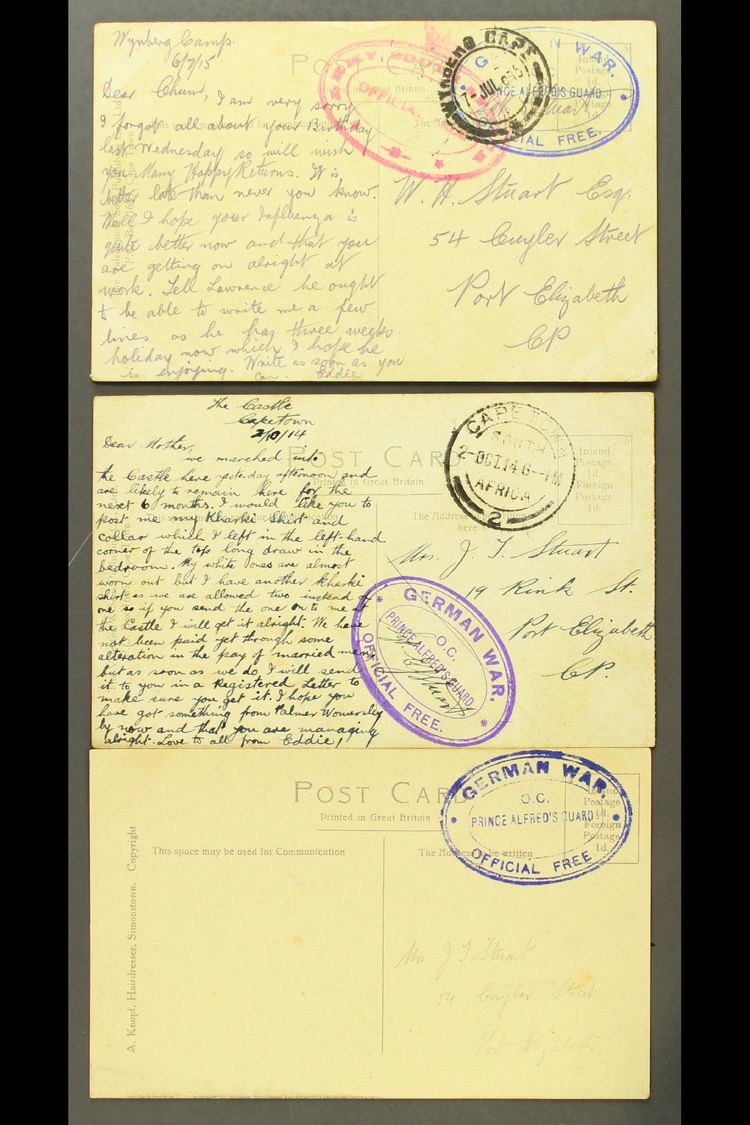 Wynberg Camp.
6/7/15
Dear Chum, I am very sorry
I forgot all about your Birthday
last Wednesday so will wish
you Many Happy Returns. It is
better late than never you know.
Well I hope your Influenza is
quite better now and that you
are getting on alright at
work. Tell Lawrence he ought
to be able to write me a few
lines as he has three weeks
holiday now which I hope he
is enjoying. Write as soon as you
can. Eddie
POST CA
WYNBERG CAPE
7 JUL 15
OFFICIAL
WAR.
PRINCE ALFRED'S GUARD
IAL FREE.
Stuart
W. H. Stuart Esq.
54 Cuyler Street
Port Elizabeth
CP
The Castle
Capetown
2/10/14
Dear Mother,
we marched into
the Castle here yesterday afternoon and
are likely to remain here for the
next 6 months. I would like you to
post me my Kharki shirt and
collar which I left in the left-hand
corner of the top long draw in the
bedroom. My white ones are almost
worn out but I have another kharki
shirt as we are allowed two instead of
one so if you send the one on to me at
the Castle I will get it alright. We have
not been paid yet through some
alteration in the pay of married men
but as soon as we do I will send
it to you in a Registered Letter to
make sure you get it. I hope you
have got something from Palmer
by now and that you are managing
alright. Love to all from Eddie
POST CARD
Printed in Great Britain
The Address
here
CAPE TOWN
SOUTH
2-OCT.14 6-PM
AFRICA
2
Inland
Postage
½d.
Foreign
Postage
1d.
Mrs. J. T. Stuart
19 Rink St.
Port Elizabeth
CP.
GERMAN WAR.
O.C.
PRINCE ALFRED'S GUARD
OFFICIAL FREE.
POST CARD
Printed in Great Britain
This space may be used for Communication
The Address be written
A. Knopf, Hairdresser, Simonstown. Copyright
GERMAN WAR.
O.C.
PRINCE ALFRED'S GUARD
OFFICIAL FREE
Inland
Postage
½d.
Foreign
Postage
1d.
Mrs J T Stuart
54 Cuyler Street
Port Elizabeth